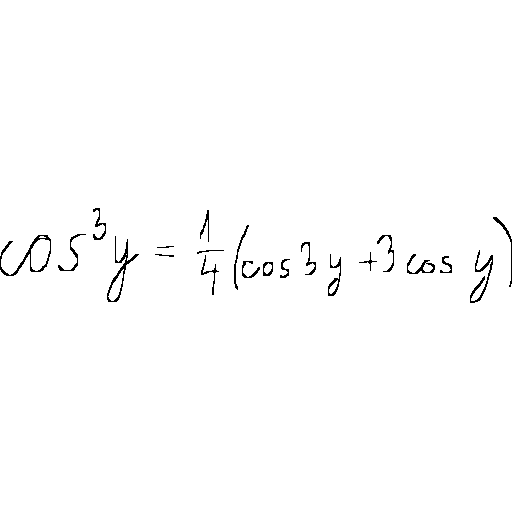 cos³y = 1/4 (cos 3y + 3 cos y)